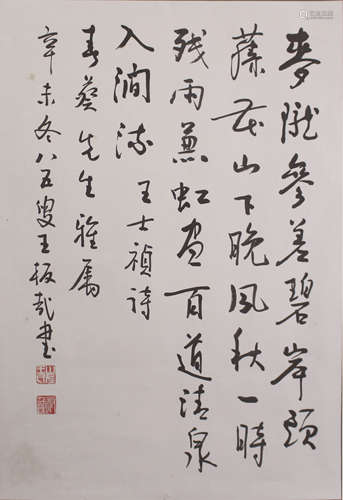 麥隴參差碧岸頭
蘇芒山下晚風秋一時
殘雨蒹虹盡百道清泉
入澗流 王士禎詩
春葵先生雅屬
辛未冬八五叟王板哉書